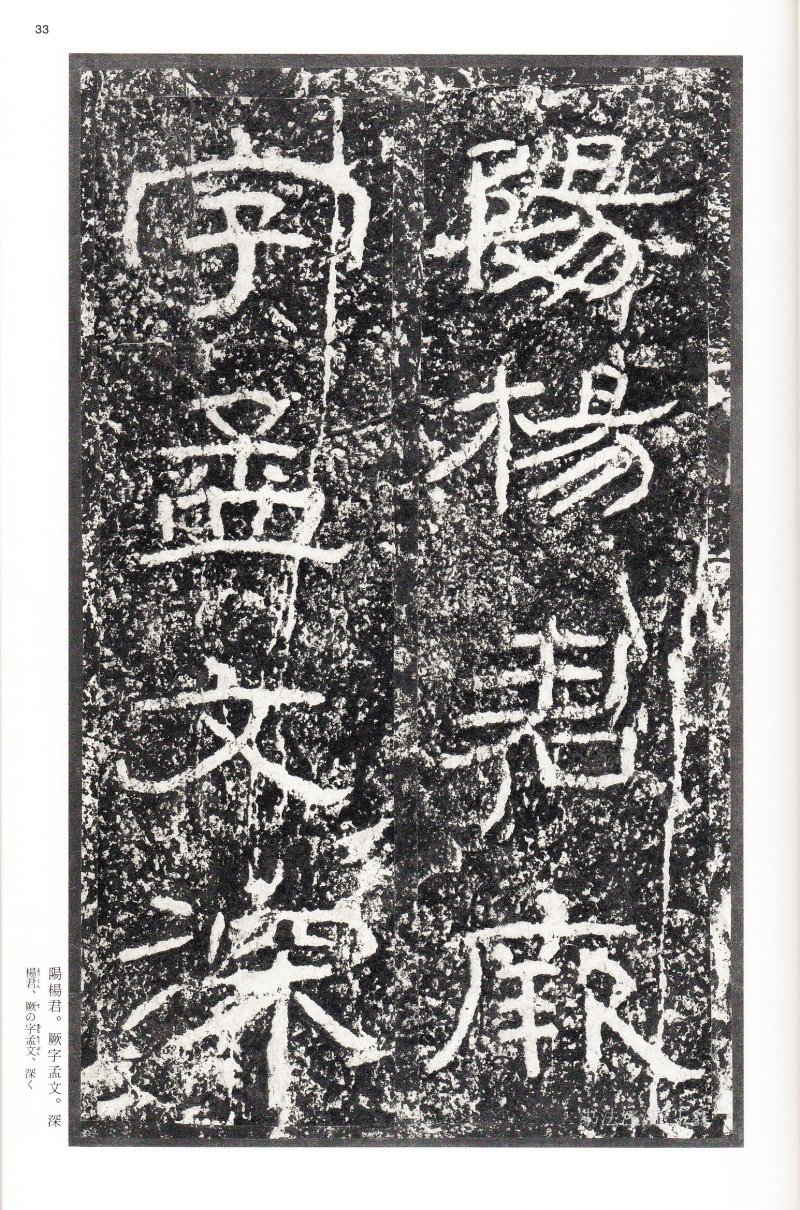 33
陽楊君厥
字孟文深
陽楊君。厥字孟文。深
楊君、厥の字孟文、深く